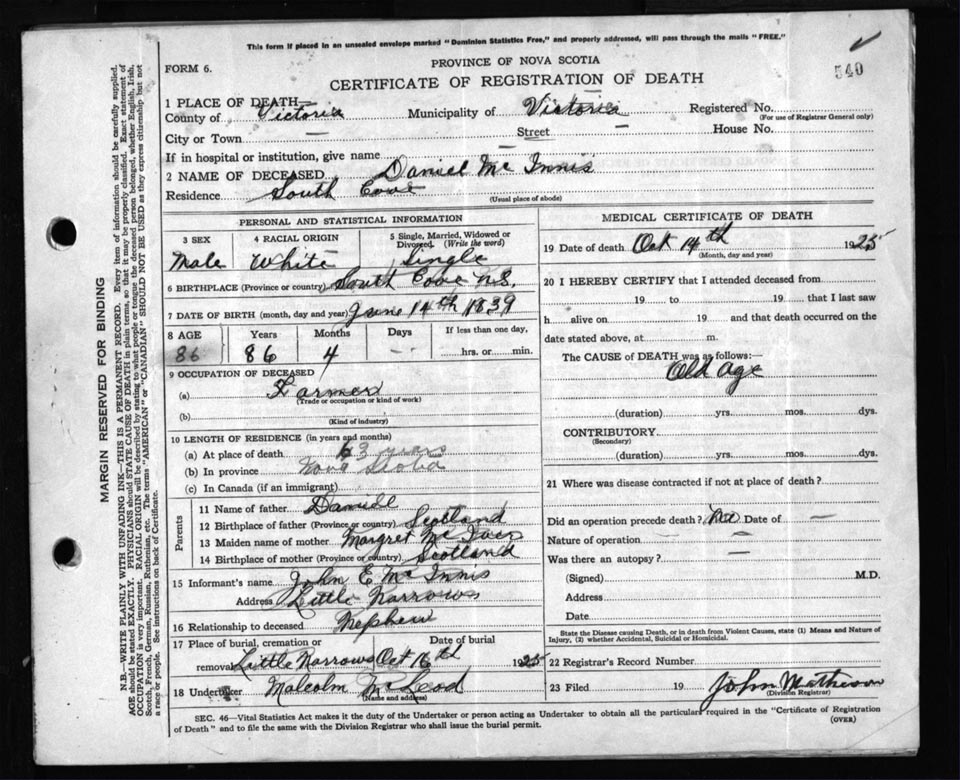 This form if placed in an unsealed envelope marked "Dominion Statistics Free," and properly addressed, will pass through the mails "FREE."
FORM 6.
PROVINCE OF NOVA SCOTIA
CERTIFICATE OF REGISTRATION OF DEATH
540
1 PLACE OF DEATH
County of Victoria Municipality of Victoria Registered No.
(For use of Registrar General only)
City or Town — Street — House No.
If in hospital or institution, give name
2 NAME OF DECEASED Daniel Mc Innis
Residence South Cove
(Usual place of abode)
PERSONAL AND STATISTICAL INFORMATION
3 SEX 4 RACIAL ORIGIN 5 Single, Married, Widowed or Divorced. (Write the word)
Male White Single
6 BIRTHPLACE (Province or country) South Cove N.S.
7 DATE OF BIRTH (month, day and year) June 14th 1839
8 AGE Years Months Days If less than one day,
86 86 4 -- hrs. or min.
9 OCCUPATION OF DECEASED
(a) Farmer
(Trade or occupation or kind of work)
(b)
(Kind of industry)
10 LENGTH OF RESIDENCE (in years and months)
(a) At place of death 63 years
(b) In province Nova Scotia
(c) In Canada (if an immigrant)
Parents
11 Name of father Daniel
12 Birthplace of father (Province or country) Scotland
13 Maiden name of mother Margret Mc Iver
14 Birthplace of mother (Province or country) Scotland
15 Informant's name John E. Mc Innis
Address Little Narrows
16 Relationship to deceased Nephew
17 Place of burial, cremation or Date of burial
removal Little Narrows Oct 16th 1925
18 Undertaker Malcolm McLeod
(Name and address)
MEDICAL CERTIFICATE OF DEATH
19 Date of death Oct 14th 1925
(Month, day and year)
20 I HEREBY CERTIFY that I attended deceased from
19 to 19 that I last saw
h alive on 19 and that death occurred on the
date stated above, at m.
The CAUSE of DEATH was as follows:—
Old Age
(duration) yrs. mos. dys.
CONTRIBUTORY
(Secondary)
(duration) yrs. mos. dys.
21 Where was disease contracted if not at place of death?
Did an operation precede death? No Date of —
Nature of operation —
Was there an autopsy? —
(Signed) M.D.
Address
Date
State the Disease causing Death, or in death from Violent Causes, state (1) Means and Nature of
Injury, (2) whether Accidental, Suicidal or Homicidal.
22 Registrar's Record Number
23 Filed 19 John Matheson
(Division Registrar)
SEC. 46—Vital Statistics Act makes it the duty of the Undertaker or person acting as Undertaker to obtain all the particulars required in the "Certificate of Registration
of Death" and to file the same with the Division Registrar who shall issue the burial permit.
(OVER)
MARGIN RESERVED FOR BINDING
N.B.—WRITE PLAINLY WITH UNFADING INK—THIS IS A PERMANENT RECORD. Every item of information should be carefully supplied.
AGE should be stated EXACTLY. PHYSICIANS should STATE CAUSE OF DEATH in plain terms, so that it may be properly classified. Exact statement of
OCCUPATION is very important. RACIAL ORIGIN will be described by stating to what people or tongue the deceased person belonged, whether English, Irish,
Scotch, French, German, Russian, Ruthenian, etc. The terms "AMERICAN" or "CANADIAN" SHOULD NOT BE USED as they express citizenship but not
a race or people. See instructions on back of Certificate.